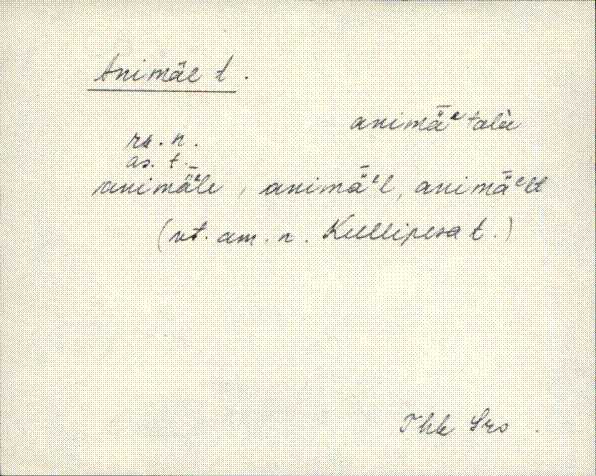 Animäe t.
animǟᵉ talu
rk. n.
as. t.
animǟᵉle, animǟᵉl, animǟᵉlt
(vt. am. n. Kullipesa t.)
Thk